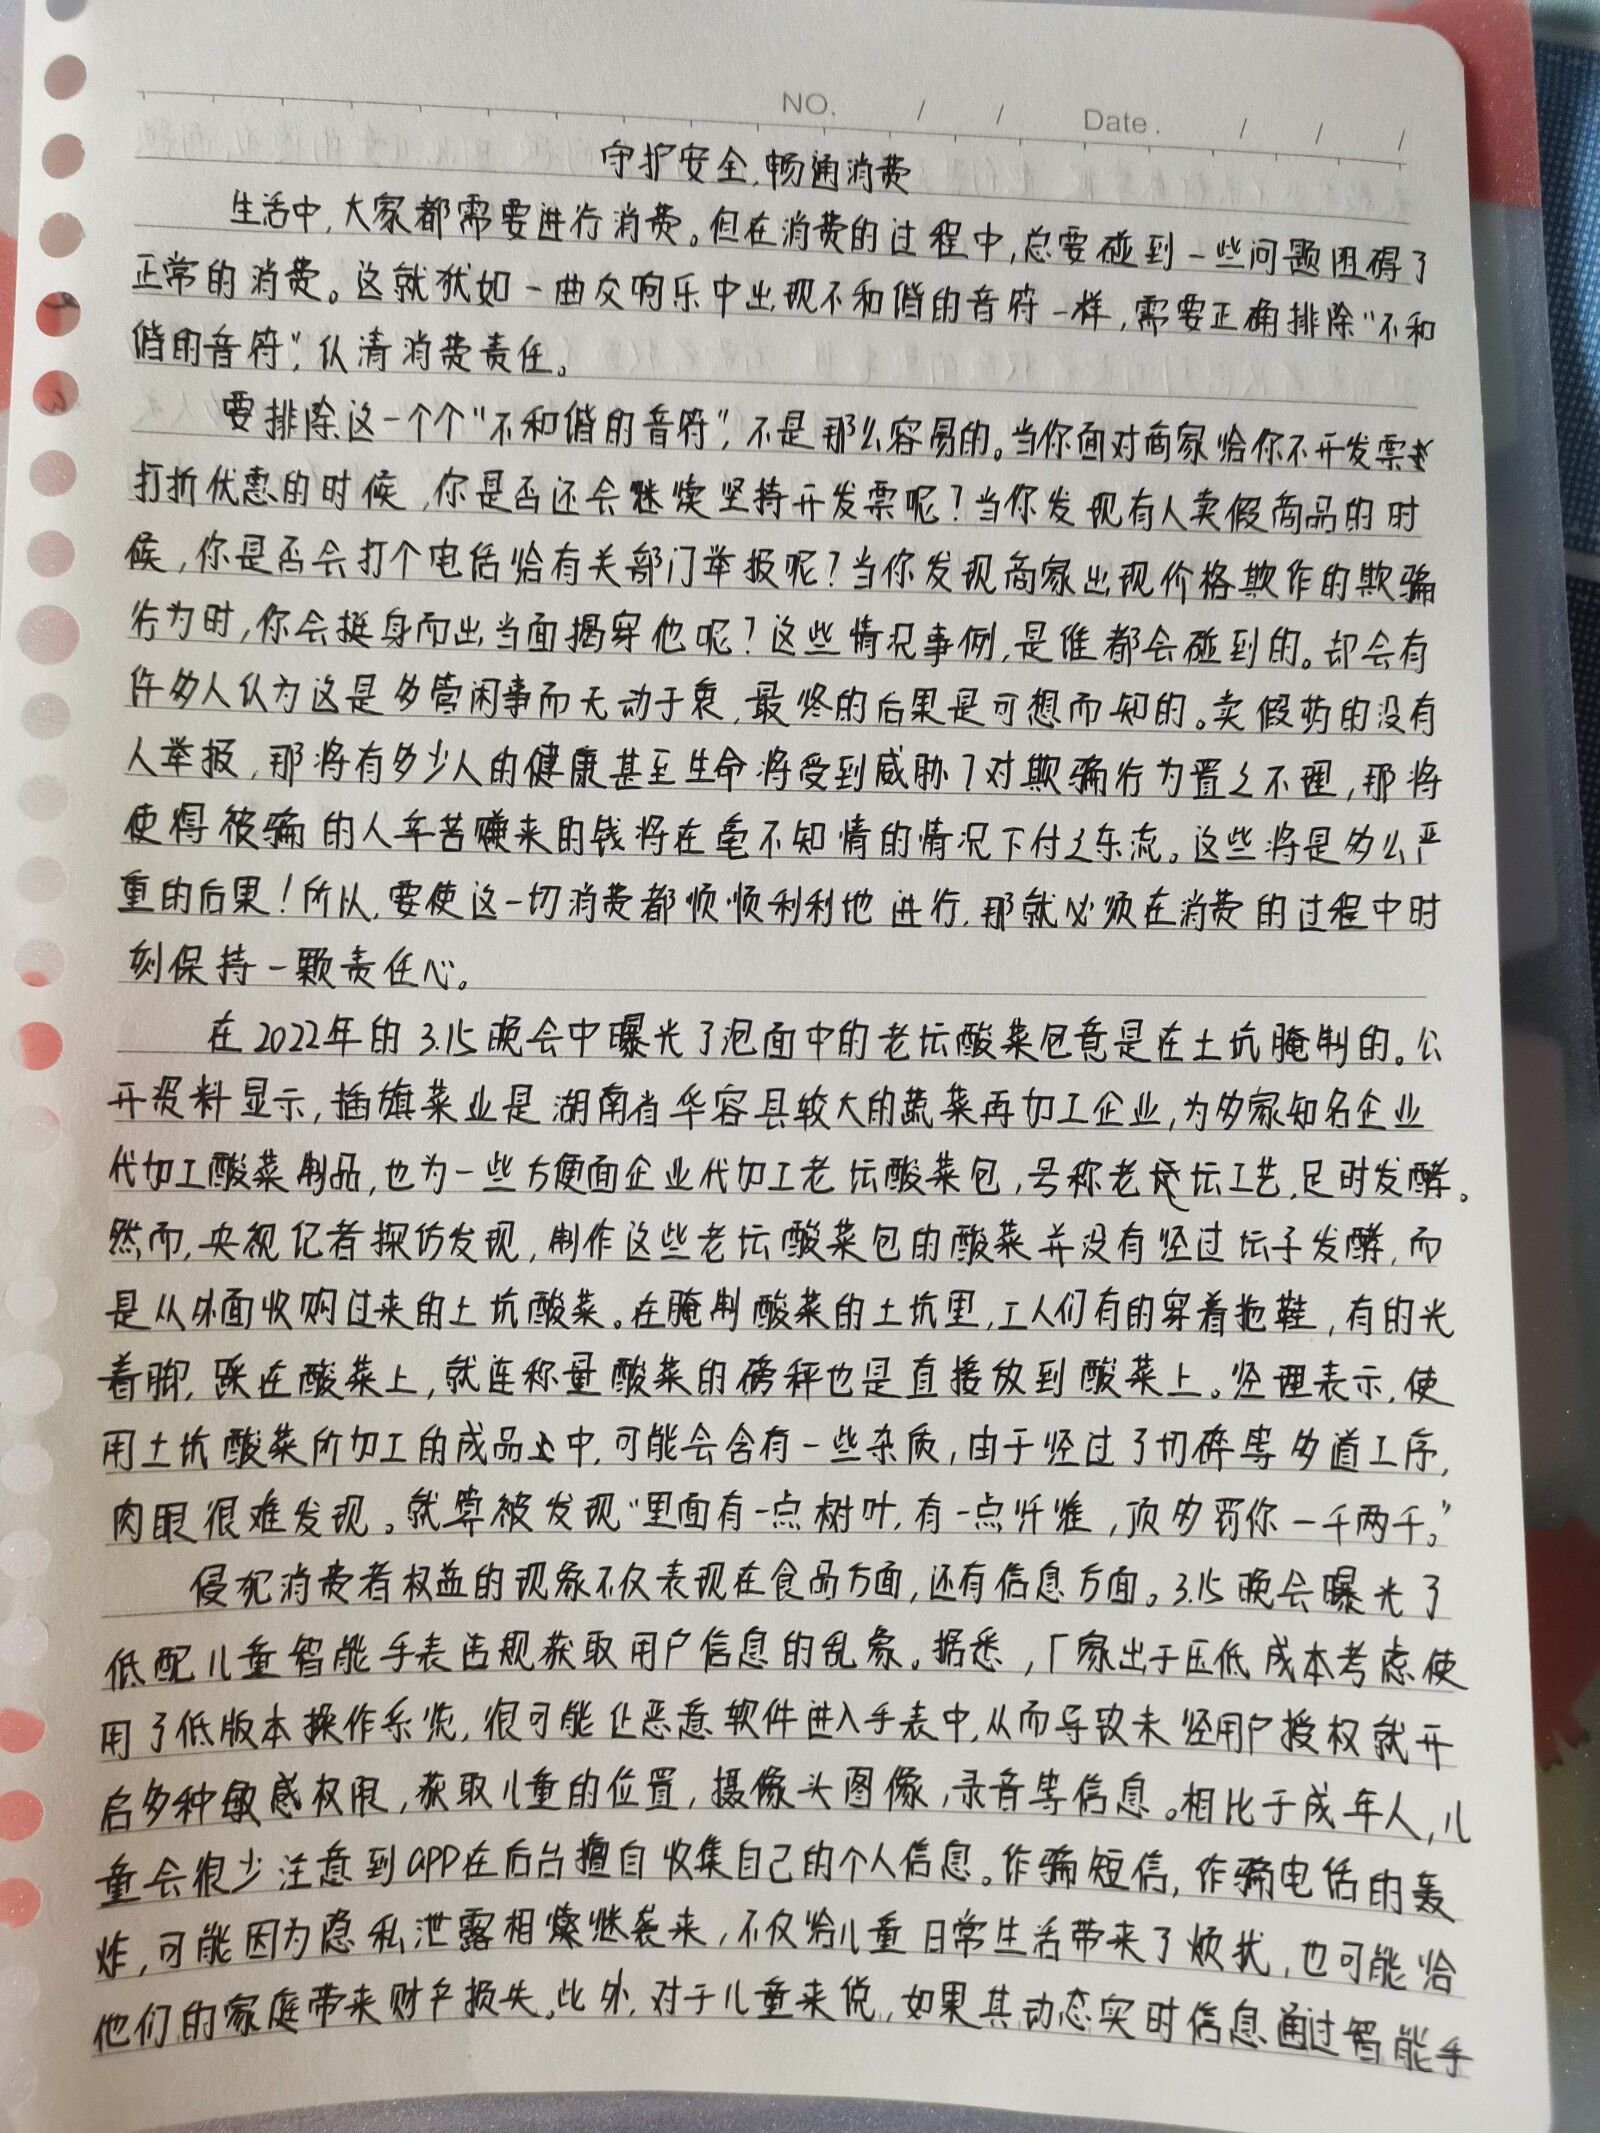 NO. / / Date. / / /
守护安全,畅通消费
生活中,大家都需要进行消费。但在消费的过程中,总要碰到一些问题困碍了
正常的消费。这就犹如一曲交响乐中出现不和谐的音符一样,需要正确排除“不和
谐的音符”,认清消费责任。
要排除这一个个“不和谐的音符”,不是那么容易的。当你面对商家给你不开发票
打折优惠的时候,你是否还会继续坚持开发票呢?当你发现有人卖假商品的时
候,你是否会打个电话给有关部门举报呢?当你发现商家出现价格欺诈的欺骗
行为时,你会挺身而出当面揭穿他呢?这些情况事例,是谁都会碰到的。却会有
许多人认为这是多管闲事而无动于衷,最终的后果是可想而知的。卖假药的没有
人举报,那将有多少人的健康甚至生命将受到威胁?对欺骗行为置之不理,那将
使得被骗的人辛苦赚来的钱将在毫不知情的情况下付之东流。这些将是多么严
重的后果!所以,要使这一切消费都顺顺利利地进行,那就必须在消费的过程中时
刻保持一颗责任心。
在2022年的3.15晚会中曝光了泡面中的老坛酸菜包竟是在土坑腌制的。公
开资料显示,插旗菜业是湖南省华容县较大的蔬菜再加工企业,为多家知名企业
代加工酸菜制品,也为一些方便面企业代加工老坛酸菜包,号称老坛工艺,足时发酵。
然而,央视记者探访发现,制作这些老坛酸菜包的酸菜并没有经过坛子发酵,而
是从外面收购过来的土坑酸菜。在腌制酸菜的土坑里,工人们有的穿着拖鞋,有的光
着脚,踩在酸菜上,就连称量酸菜的磅秤也是直接放到酸菜上。经理表示,使
用土坑酸菜所加工的成品中,可能会含有一些杂质,由于经过了切碎等多道工序,
肉眼很难发现。就算被发现“里面有一点树叶,有一点纤维,顶多罚你一千两千。”
侵犯消费者权益的现象不仅表现在食品方面,还有信息方面。3.15晚会曝光了
低配儿童智能手表违规获取用户信息的乱象。据悉,厂家出于压低成本考虑使
用了低版本操作系统,很可能让恶意软件进入手表中,从而导致未经用户授权就开
启多种敏感权限,获取儿童的位置,摄像头图像,录音等信息。相比于成年人,儿
童会很少注意到app在后台擅自收集自己的个人信息。诈骗短信,诈骗电话的轰
炸,可能因为隐私泄露相继袭来,不仅给儿童日常生活带来了烦扰,也可能给
他们的家庭带来财产损失。此外,对于儿童来说,如果其动态实时信息通过智能手